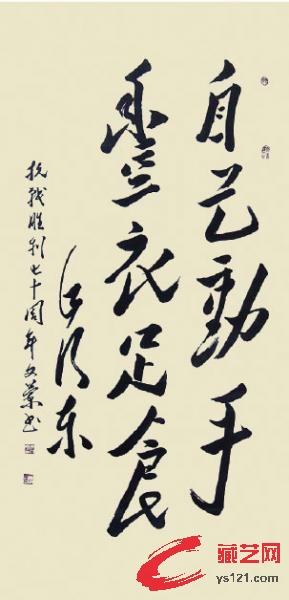 自己動手
豐衣足食
毛泽东
抗战胜利七十周年文书
藏艺网
ys121.com